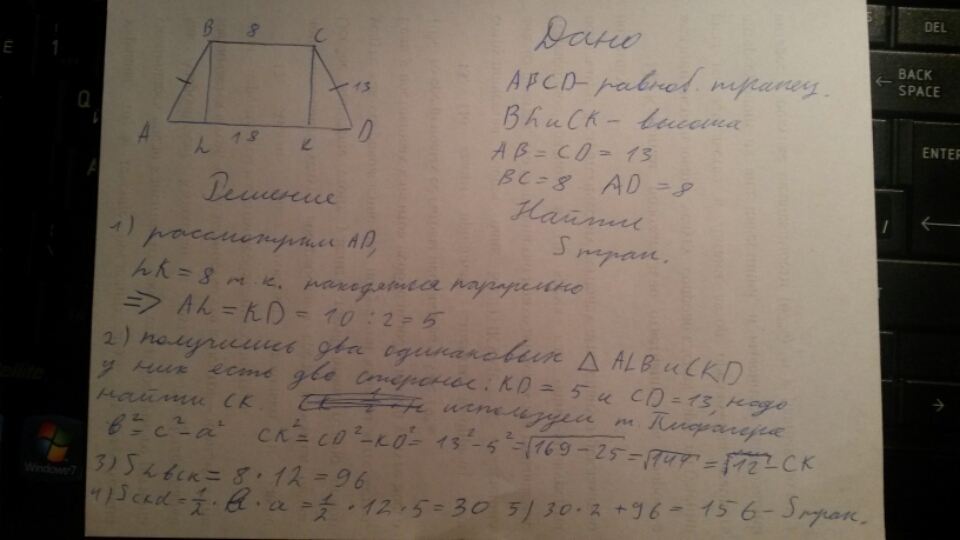 B 8 C
13
A L 18 K D
Дано
ABCD - равноб. трапец.
BL и CK - высота
AB = CD = 13
BC = 8 AD = 8
Найти
S трап.
Решение
1) рассмотрим AD,
LK = 8 т.к. находяться
=> AL = KD = 10 : 2 = 5
2) получились два одинаковых △ ALB и CKD
у них есть две стороны: KD = 5 и CD = 13, надо
найти CK. используем т. Пифагора
b² = c² - a² CK² = CD² - KD² = 13² - 5² = √169 - 25 = √144 = √12 - CK
3) S LBCK = 8 · 12 = 96
4) S CKD = 1/2 · b · a = 1/2 · 12 · 5 = 30 5) 30 · 2 + 96 = 156 - S трап.
DEL
BACK
SPACE
ENTER
E
1
Q
A
Windows 7